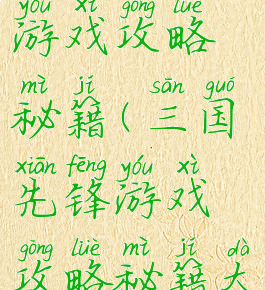 yóu xì gōng lüè
游戏攻略
mì jí sān guó
秘籍(三国
xiān fēng yóu xì
先锋游戏
gōng lüè mì jí dà
攻略秘籍大